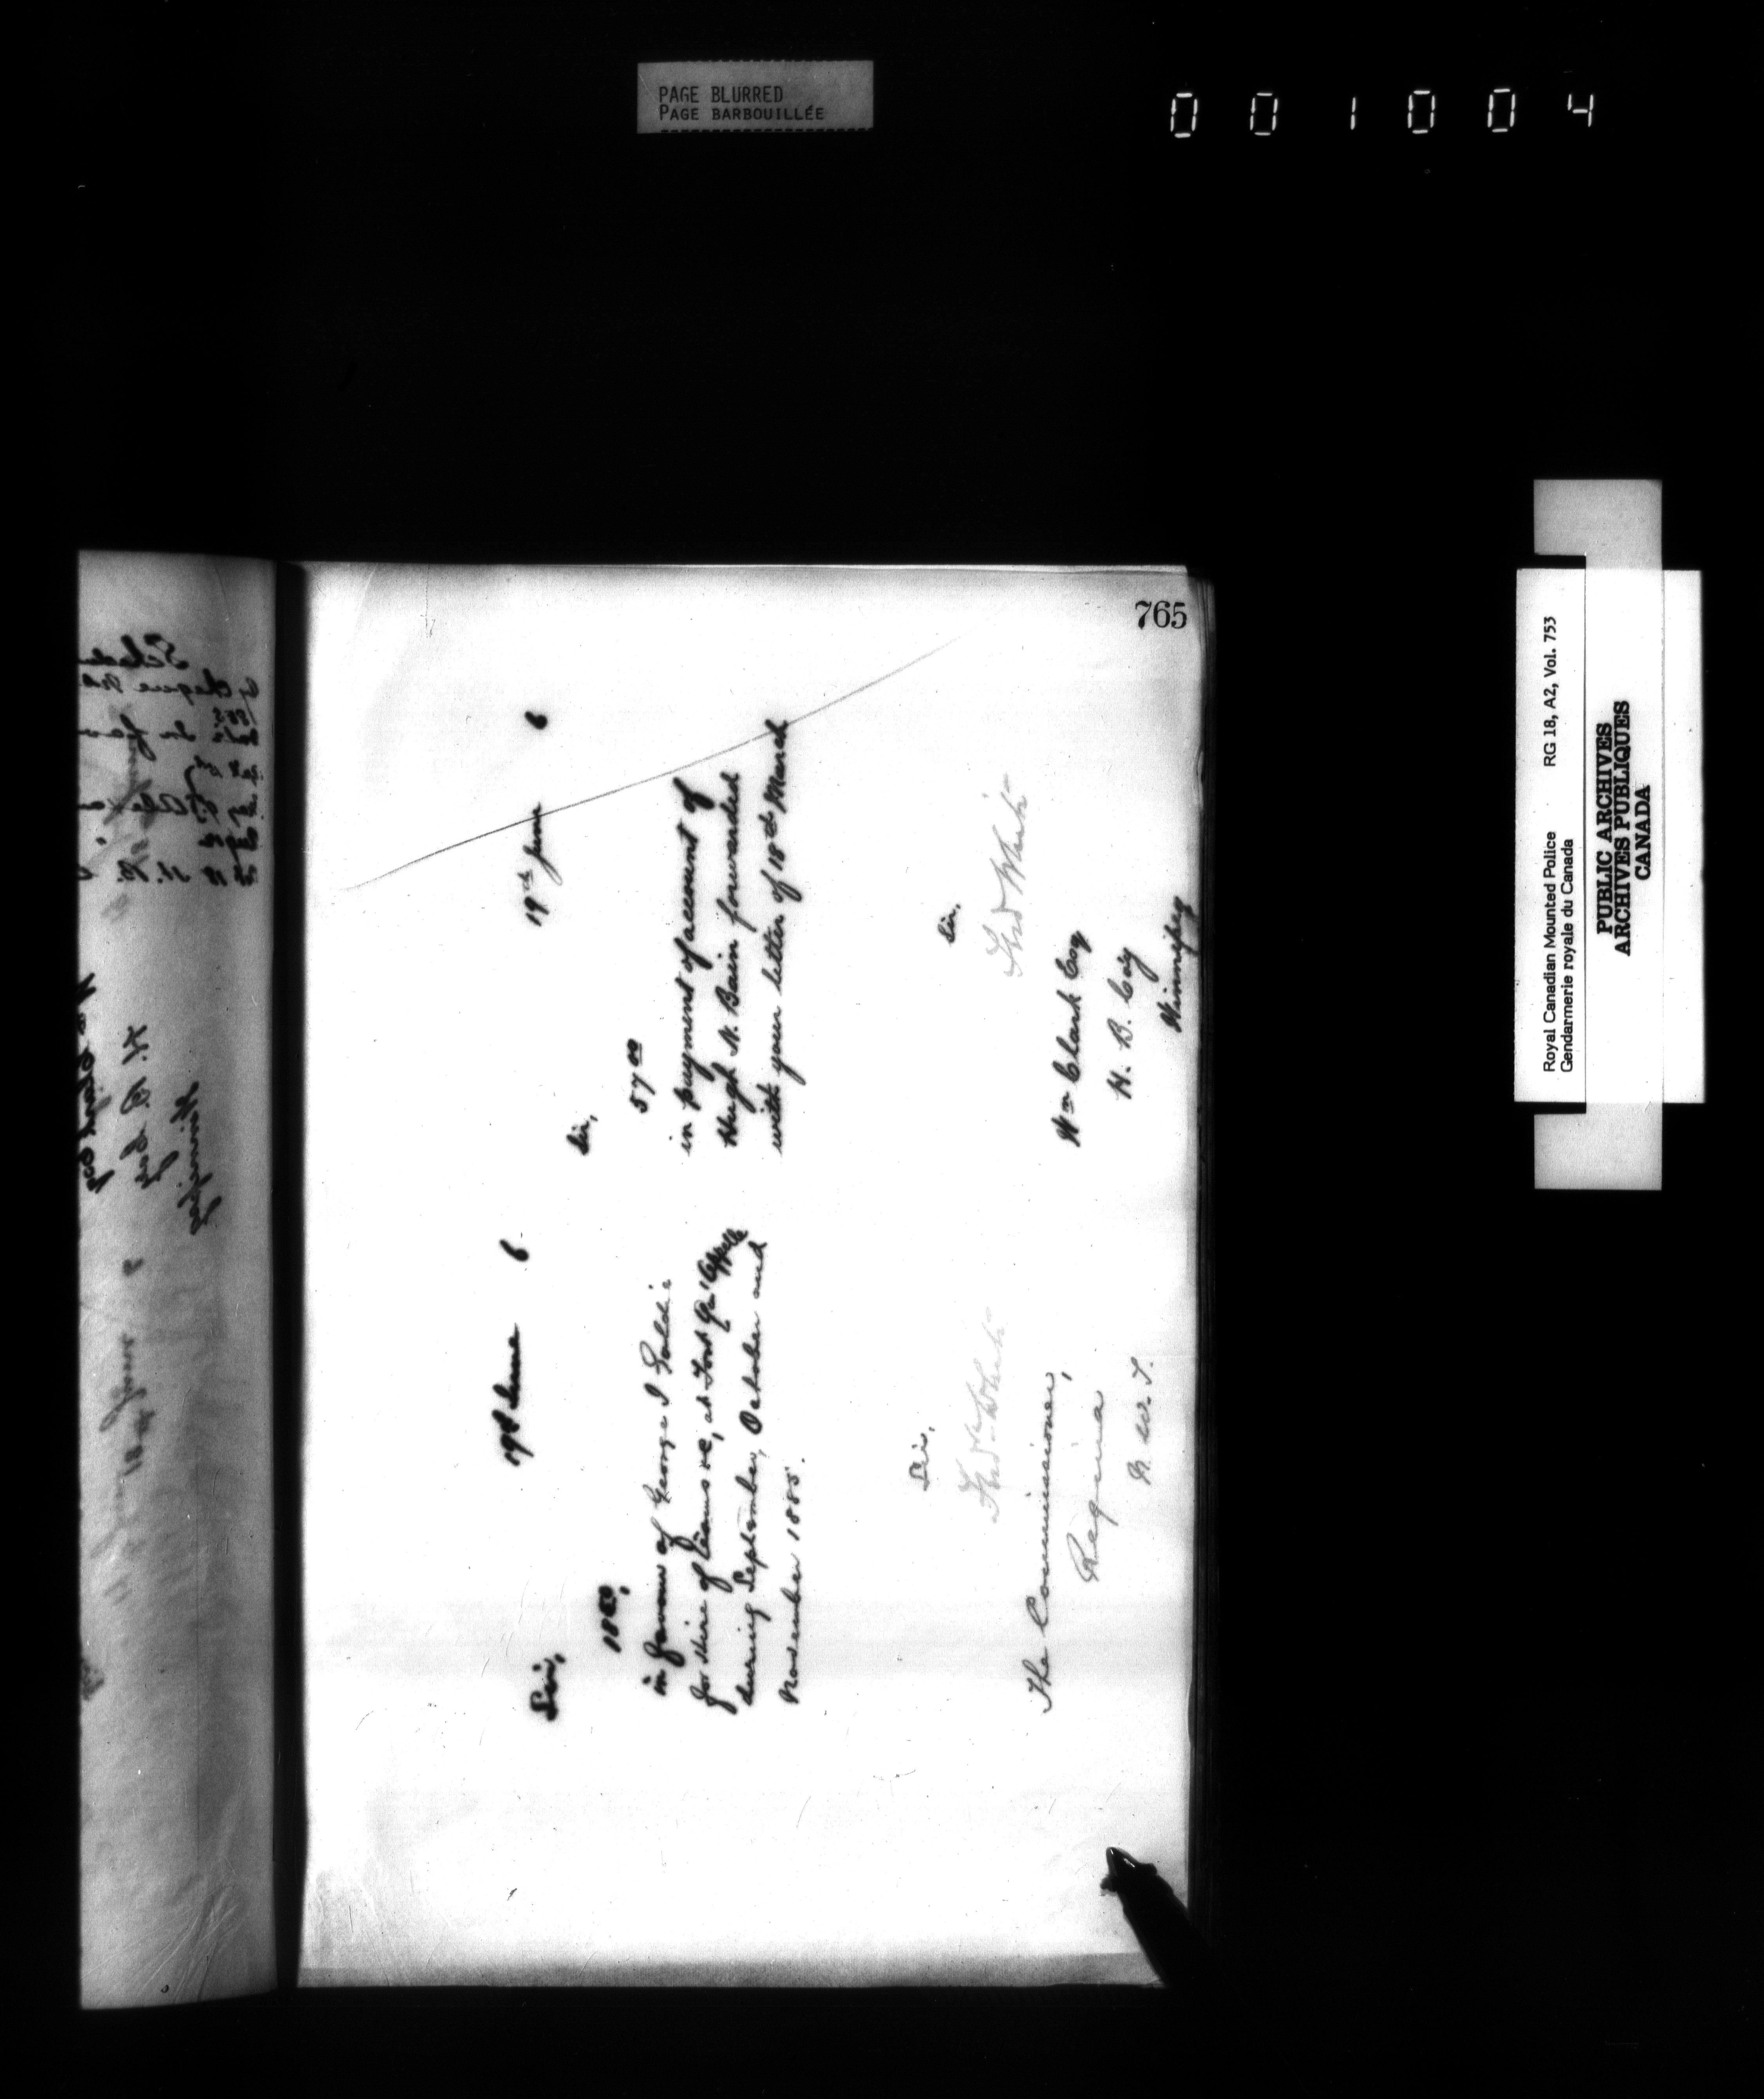 PAGE BLURRED
PAGE BARBOUILLÉE
001004
765
19th June 6
Sir,
18 00,
in favour of George I Goldie
for hire of teams &c, at Fort Qu'Appelle
during September, October and
November 1885.
Sir,
Fred White
The Commissioner,
Regina
N. W. T.
19th June 6
Sir,
57 00
in payment of account of
Hugh N. Bain forwarded
with your letter of 18th March
Sir,
Fred White
Wm Clark Esq
H. B. Coy
Winnipeg
Royal Canadian Mounted Police RG 18, A2, Vol. 753
Gendarmerie royale du Canada
PUBLIC ARCHIVES
ARCHIVES PUBLIQUES
CANADA